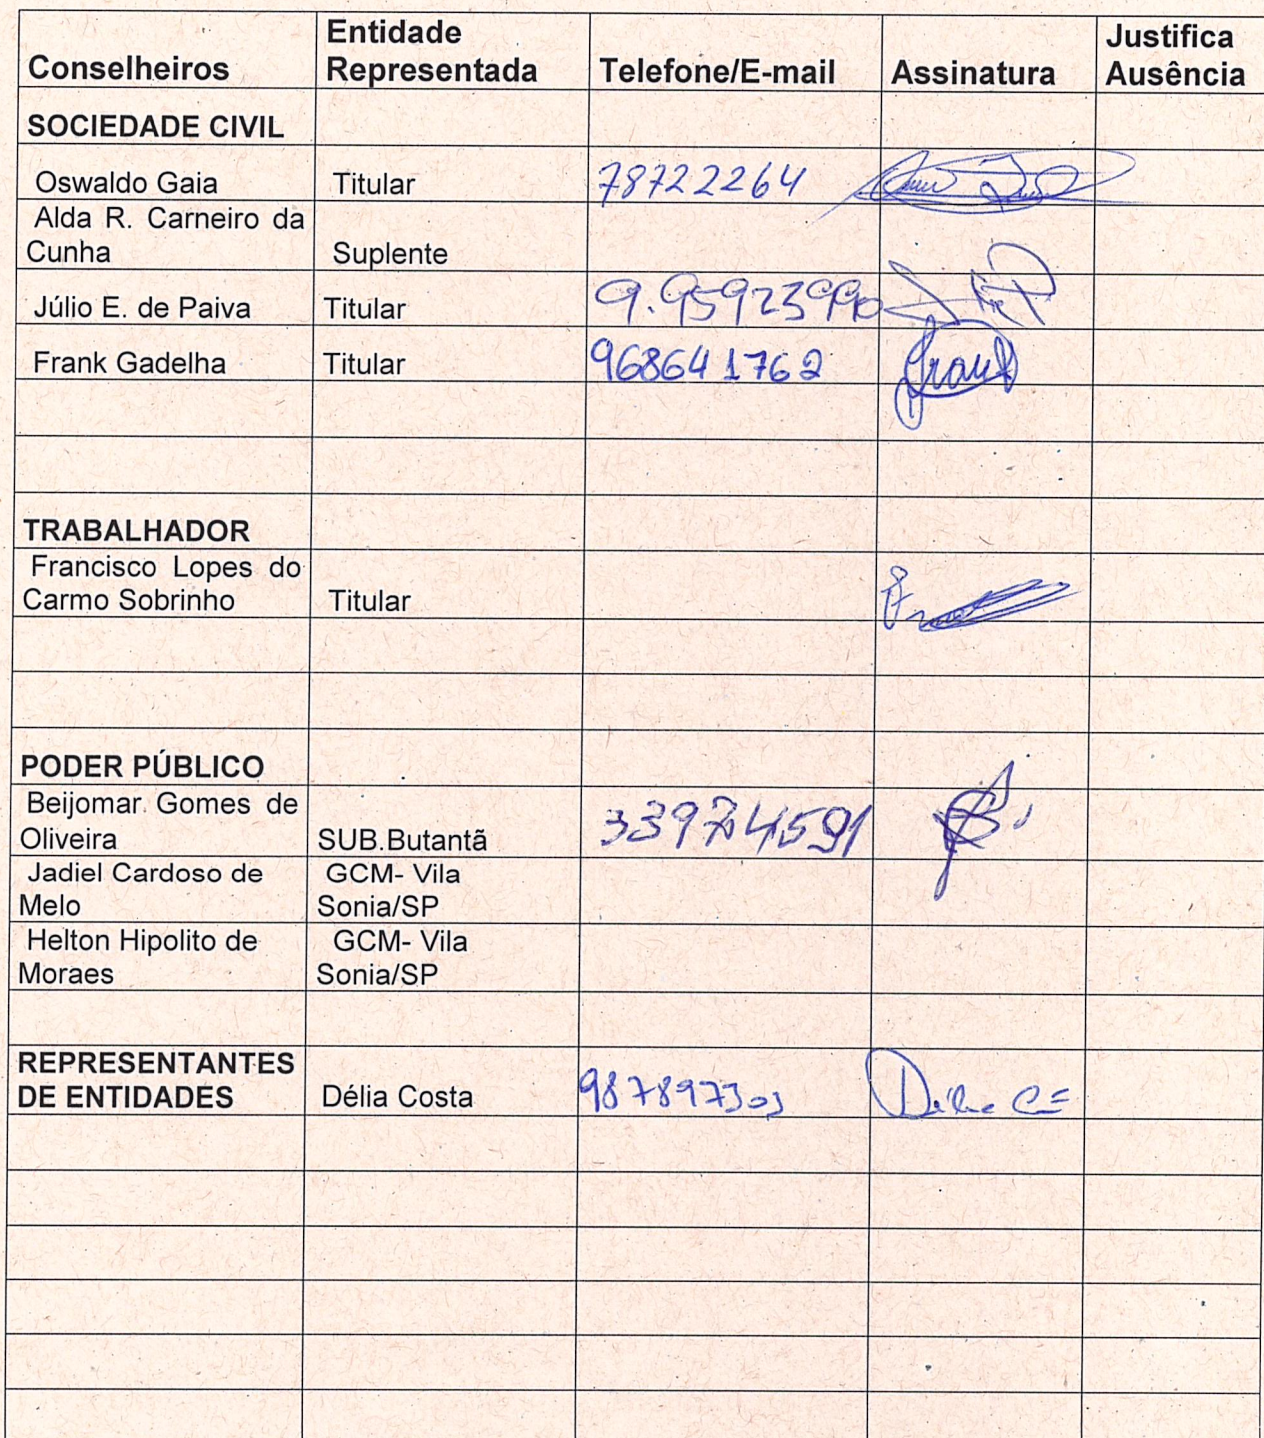 Conselheiros Entidade Representada Telefone/E-mail Assinatura Justifica Ausência
SOCIEDADE CIVIL
Oswaldo Gaia Titular 78722264
Alda R. Carneiro da
Cunha Suplente
Júlio E. de Paiva Titular 9.95923990
Frank Gadelha Titular 968641762 Frank
TRABALHADOR
Francisco Lopes do
Carmo Sobrinho Titular
PODER PÚBLICO
Beijomar Gomes de
Oliveira SUB.Butantã 33974591
Jadiel Cardoso de GCM- Vila
Melo Sonia/SP
Helton Hipolito de GCM- Vila
Moraes Sonia/SP
REPRESENTANTES
DE ENTIDADES Délia Costa 987897303